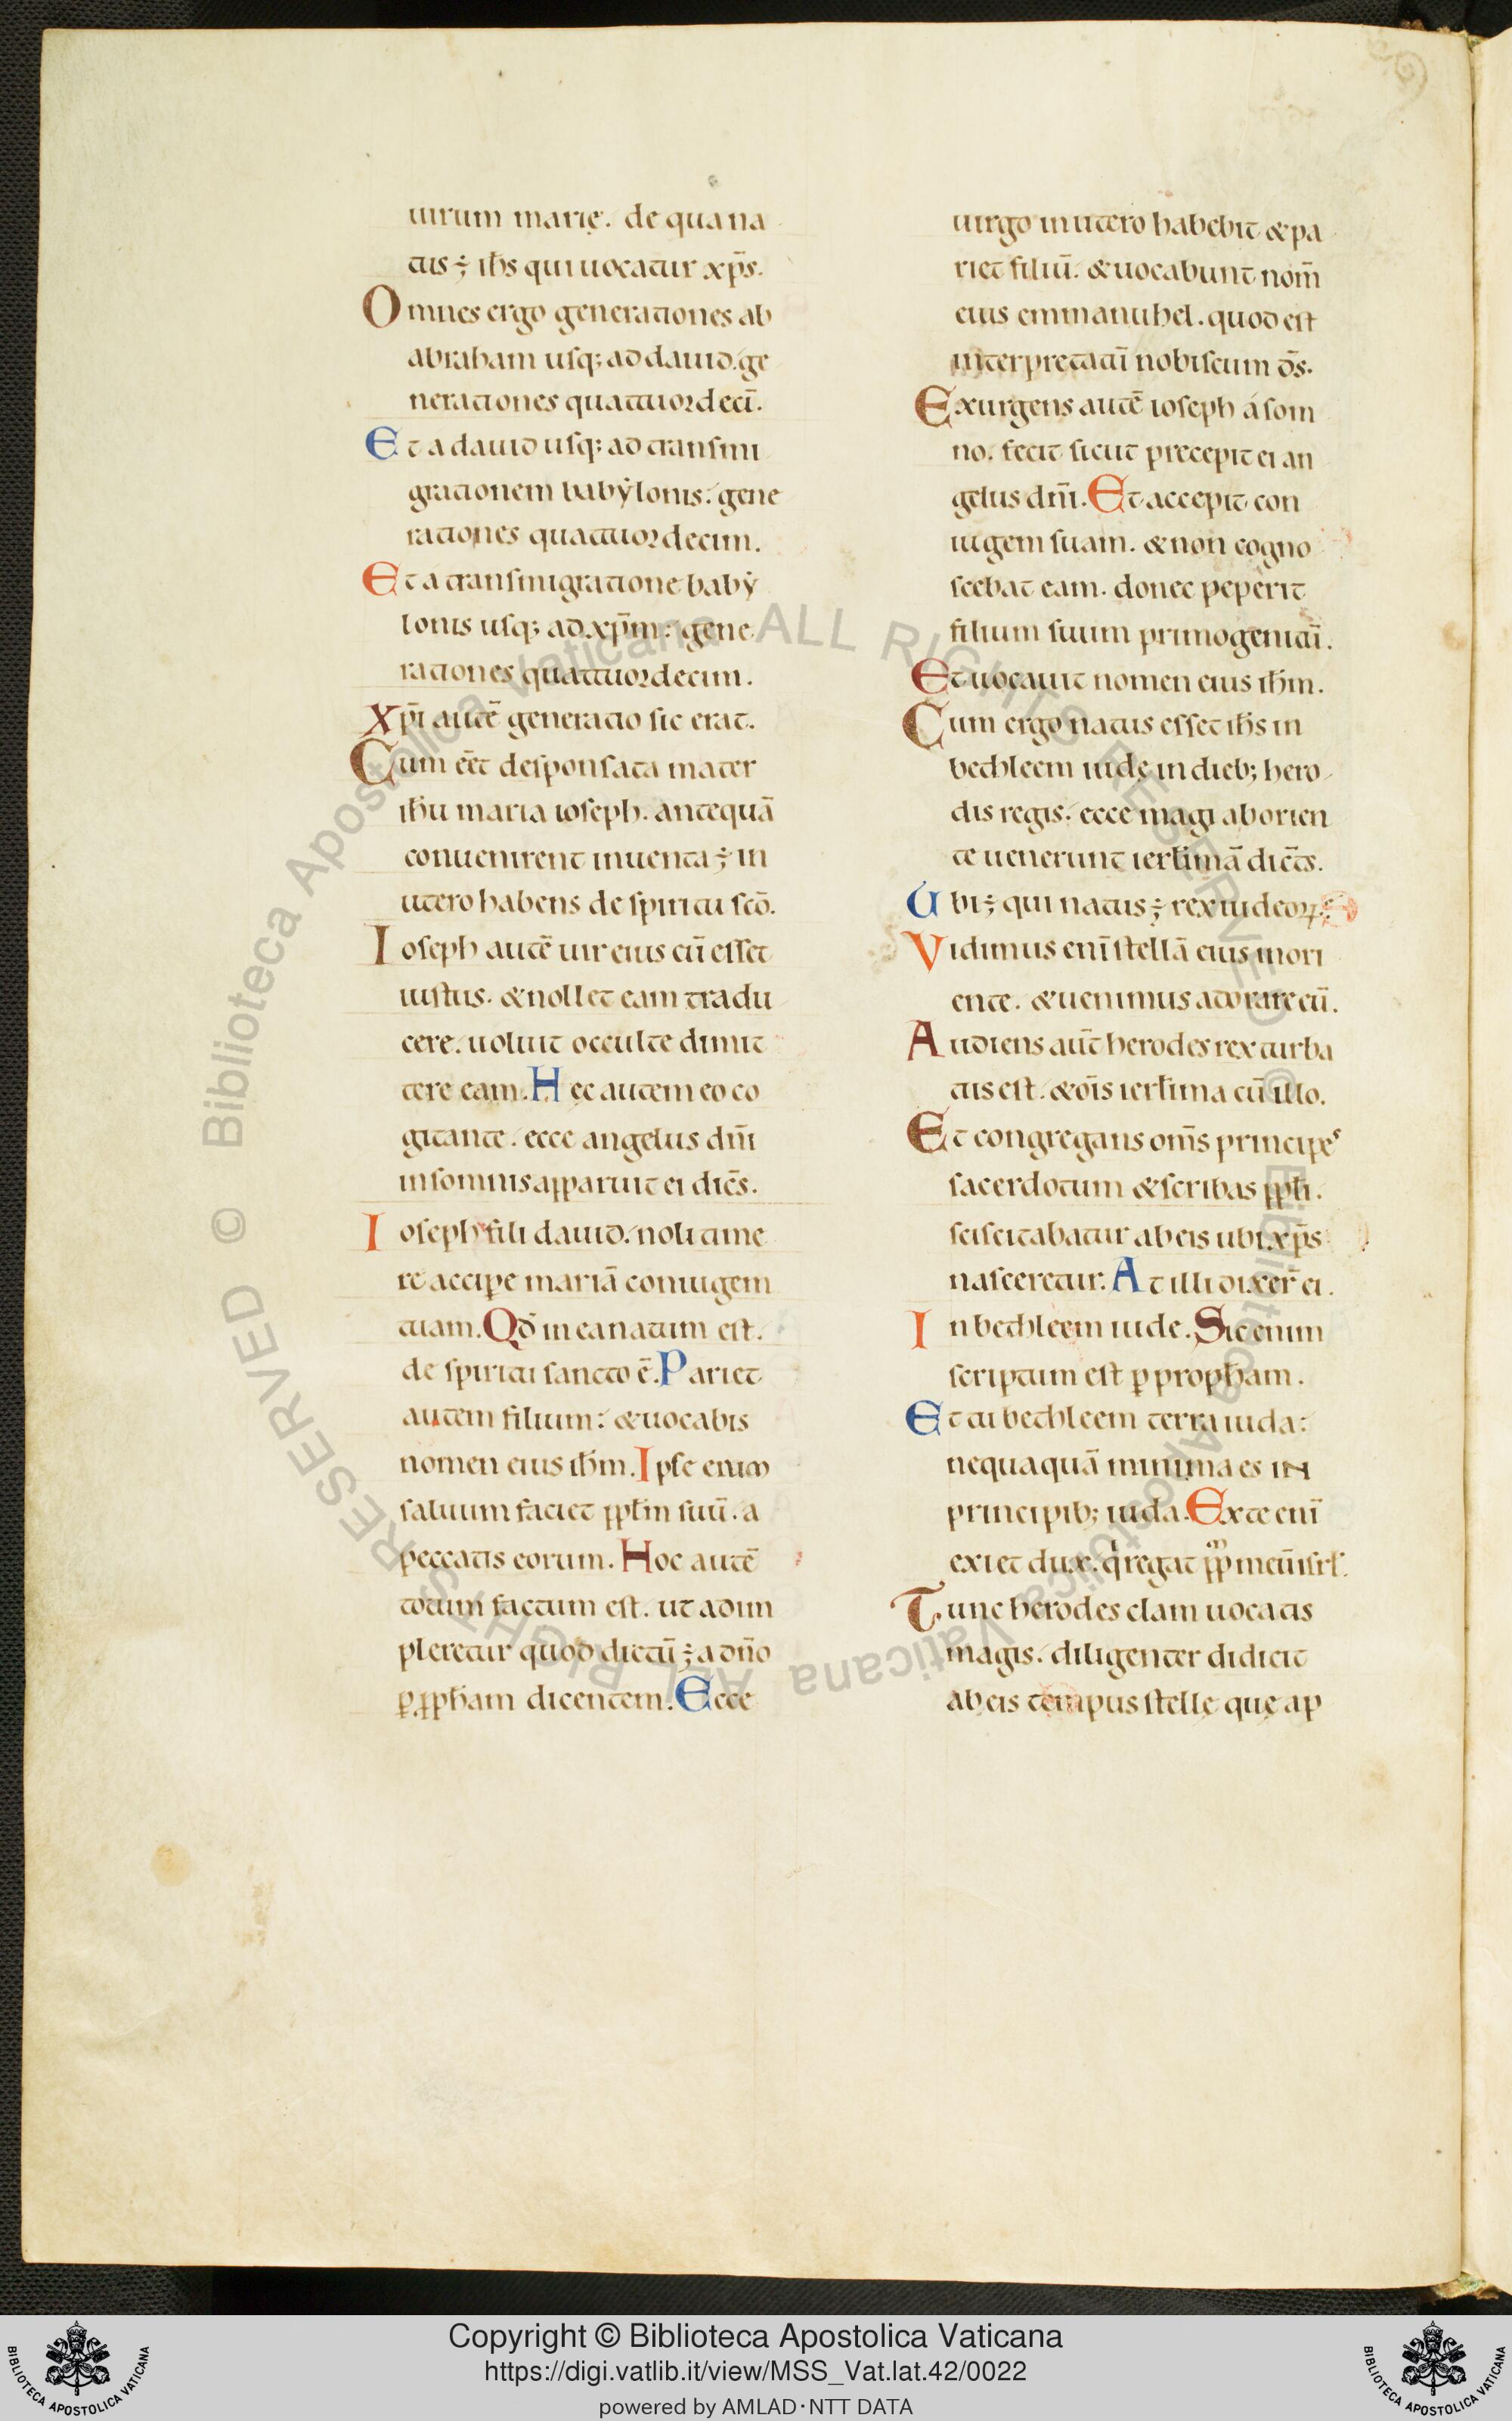 uirum marię. de qua na
tus ÷ ih̅s qui uocatur xp̅s.
Omnes ergo generationes ab
abraham usq; ad dauid. ge
nerationes quattuordeci̅.
Et a dauid usq; ad transmi
grationem babẏlonis. gene
rationes quattuordecim.
Et a transmigratione babẏ
lonis usq; ad xp̅m: gene
rationes quattuordecim.
Xp̅i aute̅ generatio sic erat.
Cum ee̅t desponsata mater
ih̅u maria ioseph. antequa̅
conuenirent inuenta ÷ in
utero habens de spiritu sc̅o.
Ioseph aute̅ uir eius cu̅ esset
iustus. & nollet eam tradu
cere. uoluit occulte dimit
tere eam. Hęc autem eo co
gitante. ecce angelus dn̅i
in somnis apparuit ei dice̅s.
Ioseph fili dauid. noli time
re accipe maria̅ coniugem
tuam. Qd̅ in ea natum est.
de spiritu sancto e̅. Pariet
autem filium: & uocabis
nomen eius ih̅m. Ipse enim
saluum faciet ppl̅m suu̅. a
peccatis eorum. Hoc aute̅
totum factum est. ut adim
pleretur quod dictu̅ ÷ a dn̅o
ꝑ ꝓph̅am dicentem. Ecce
uirgo in utero habebit & pa
riet filiu̅. & uocabunt nom̅
eius emmanuhel. quod est
interpretatu̅ nobiscum d̅s.
Exurgens aute̅ ioseph a som
no. fecit sicut precepit ei an
gelus dn̅i. Et accepit con
iugem suam. & non cogno
scebat eam. donec peperit
filium suum primogenitu̅.
Et uocauit nomen eius ih̅m.
Cum ergo natus esset ih̅s in
bethleem iudę in dieb; hero
dis regis. ecce magi ab orien
te uenerunt ierl̅ima̅ dice̅ts.
Ubi ÷ qui natus ÷ rex iudeoꝝ.
Vidimus eni̅ stella̅ eius in ori
ente. & uenimus adorare eu̅.
Audiens aut̅ herodes rex turba
tus est. & oi̅s ierl̅ima cu̅ illo.
Et congregans om̅s principes
sacerdotum & scribas ppl̅i.
sciscitabatur ab eis ubi xp̅s
nasceretur. At illi dixer̅ ei.
In bethleem iude. Sic enim
scriptum est ꝑ proph̅am.
Et tu bethleem terra iuda:
nequaqua̅ minima es in
principib; iuda. Ex te eni̅
exiet dux. qͥ regat ppm̅ meu̅ isrl̅.
Tunc herodes clam uocatis
magis. diligenter didicit
ab eis tempus stellę quę ap
Copyright © Biblioteca Apostolica Vaticana
https://digi.vatlib.it/view/MSS_Vat.lat.42/0022
powered by AMLAD·NTT DATA
BIBLIOTECA APOSTOLICA VATICANA
BIBLIOTECA APOSTOLICA VATICANA
© Biblioteca Apostolica Vaticana ALL RIGHTS RESERVED © Biblioteca Apostolica Vaticana ALL RIGHTS RESERVED